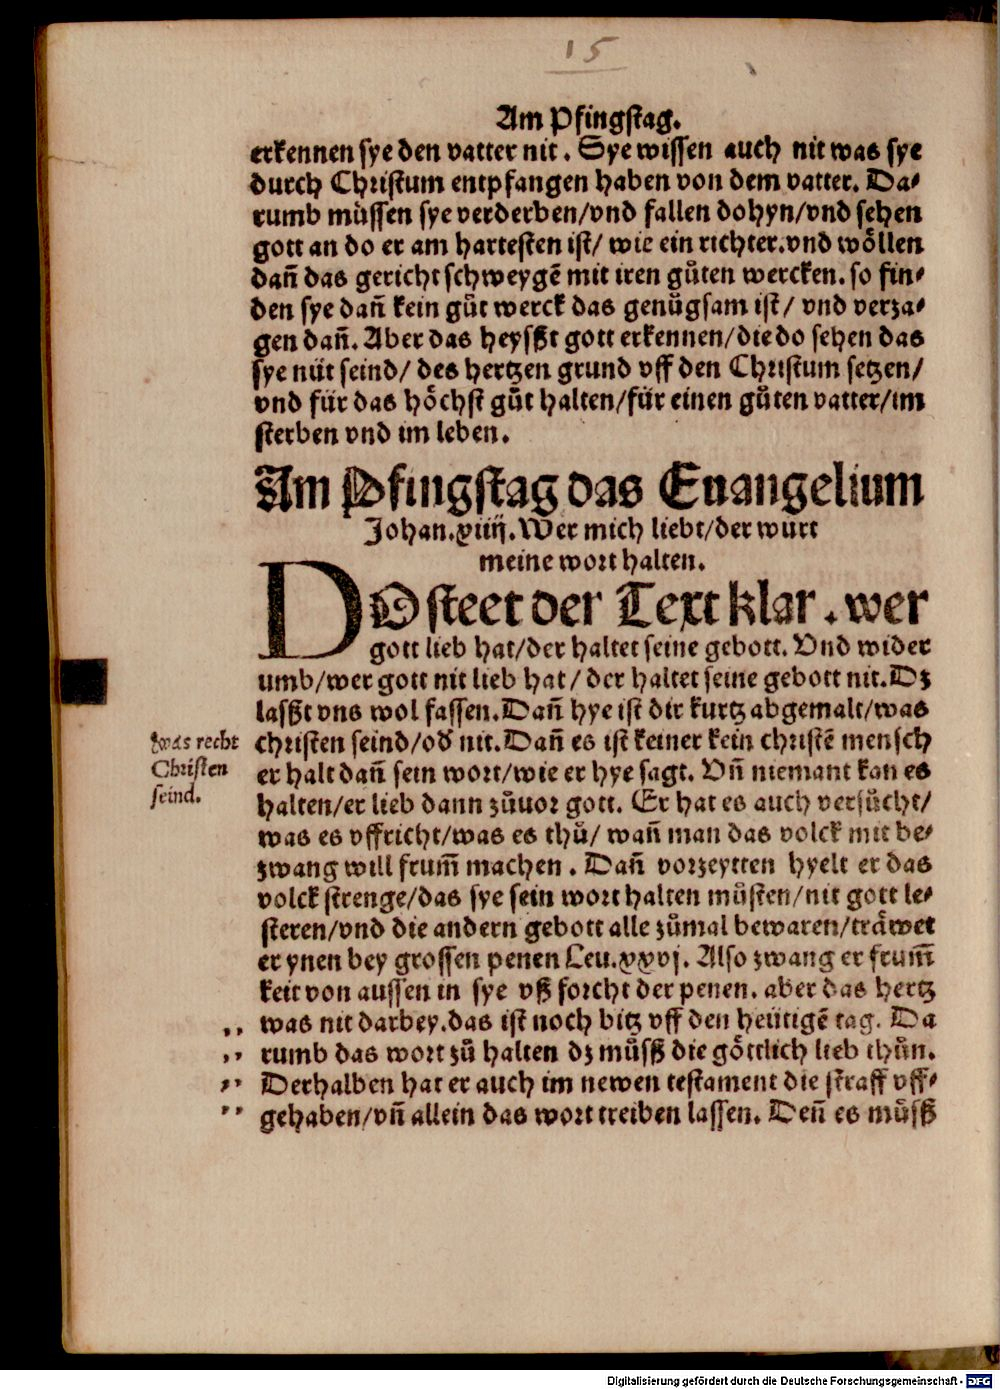 15
Am Pfingstag.
erkennen sye den vatter nit. Sye wissen auch nit was sye
durch Christum entpfangen haben von dem vatter. Da-
rumb müssen sye verderben/vnd fallen dohyn/vnd sehen
gott an do er am hartesten ist/ wie ein richter.vnd wöllen
dañ das gericht schweygē mit iren gůten wercken. so fin-
den sye dañ kein gůt werck das genůgsam ist/ vnd verza-
gen dañ. Aber das heysßt gott erkennen/die do sehen das
sye nüt seind/ des hertzen grund vff den Christum setzen/
vnd für das höchst gůt halten/für einen gůten vatter/im
sterben vnd im leben.
Am Pfingstag das Euangelium
Johan.xiiij. Wer mich liebt/der würt
meine wort halten.
DO steet der Text klar. wer
gott lieb hat/der haltet seine gebott. Vnd wider
umb/wer gott nit lieb hat/ der haltet seine gebott nit. Dz
lasßt vns wol fassen. Dañ hye ist dir kurtz abgemalt/was
christen seind/od' nit. Dañ es ist keiner kein christē mensch
er halt dañ sein wort/wie er hye sagt. Vñ niemant kan es
halten/er lieb dann zůuor gott. Er hat es auch versůcht/
was es vffricht/was es thů/ wañ man das volck mit be-
zwang will frum̃ machen. Dañ vorzeytten hyelt er das
volck strenge/das sye sein wort halten müsten/nit gott le-
steren/vnd die andern gebott alle zůmal bewaren/träwet
er ynen bey grossen penen Leu.xxvj. Also zwang er frum̃
keit von aussen in sye vß forcht der penen. aber das hertz
was nit darbey.das ist noch bitz vff den heütigē tag. Da
rumb das wort zů halten dz můsß die göttlich lieb thůn.
Derhalben hat er auch im newen testament die straff vff-
gehaben/vñ allein das wort treiben lassen. Deñ es můsß
Was recht
Christen
seind.
,,
,,
,,
,,
Digitalisierung gefördert durch die Deutsche Forschungsgemeinschaft - DFG